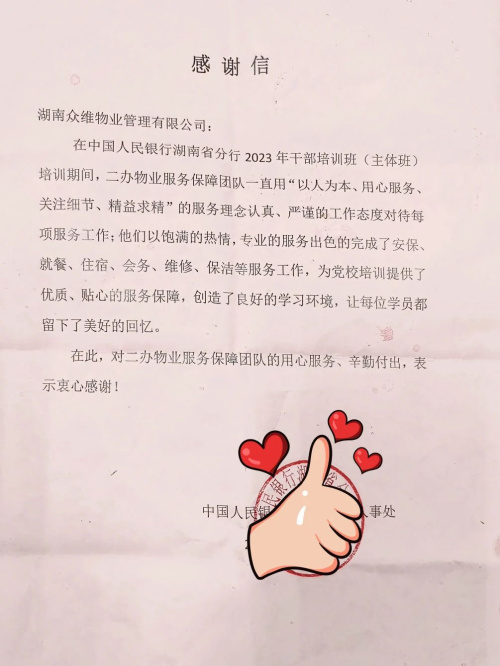 感谢信
湖南众维物业管理有限公司：
在中国人民银行湖南省分行 2023 年干部培训班（主体班）
培训期间，二办物业服务保障团队一直用“以人为本、用心服务、
关注细节、精益求精”的服务理念认真、严谨的工作态度对待每
项服务工作；他们以饱满的热情，专业的服务出色的完成了安保、
就餐、住宿、会务、维修、保洁等服务工作，为党校培训提供了
优质、贴心的服务保障，创造了良好的学习环境，让每位学员都
留下了美好的回忆。
在此，对二办物业服务保障团队的用心服务、辛勤付出，表
示衷心感谢！
中国人民银 人事处